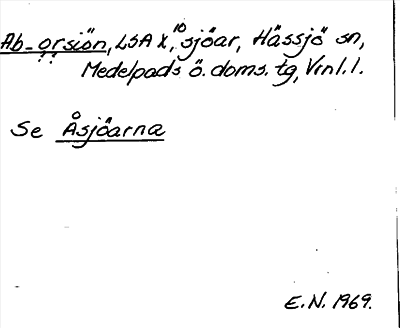 Ab-orsiön, LSA X, 10 sjöar, Hässjö sn,
Medelpads ö. doms. tg, Vrnl. l.
Se Åsjöarna
E.N. 1969.